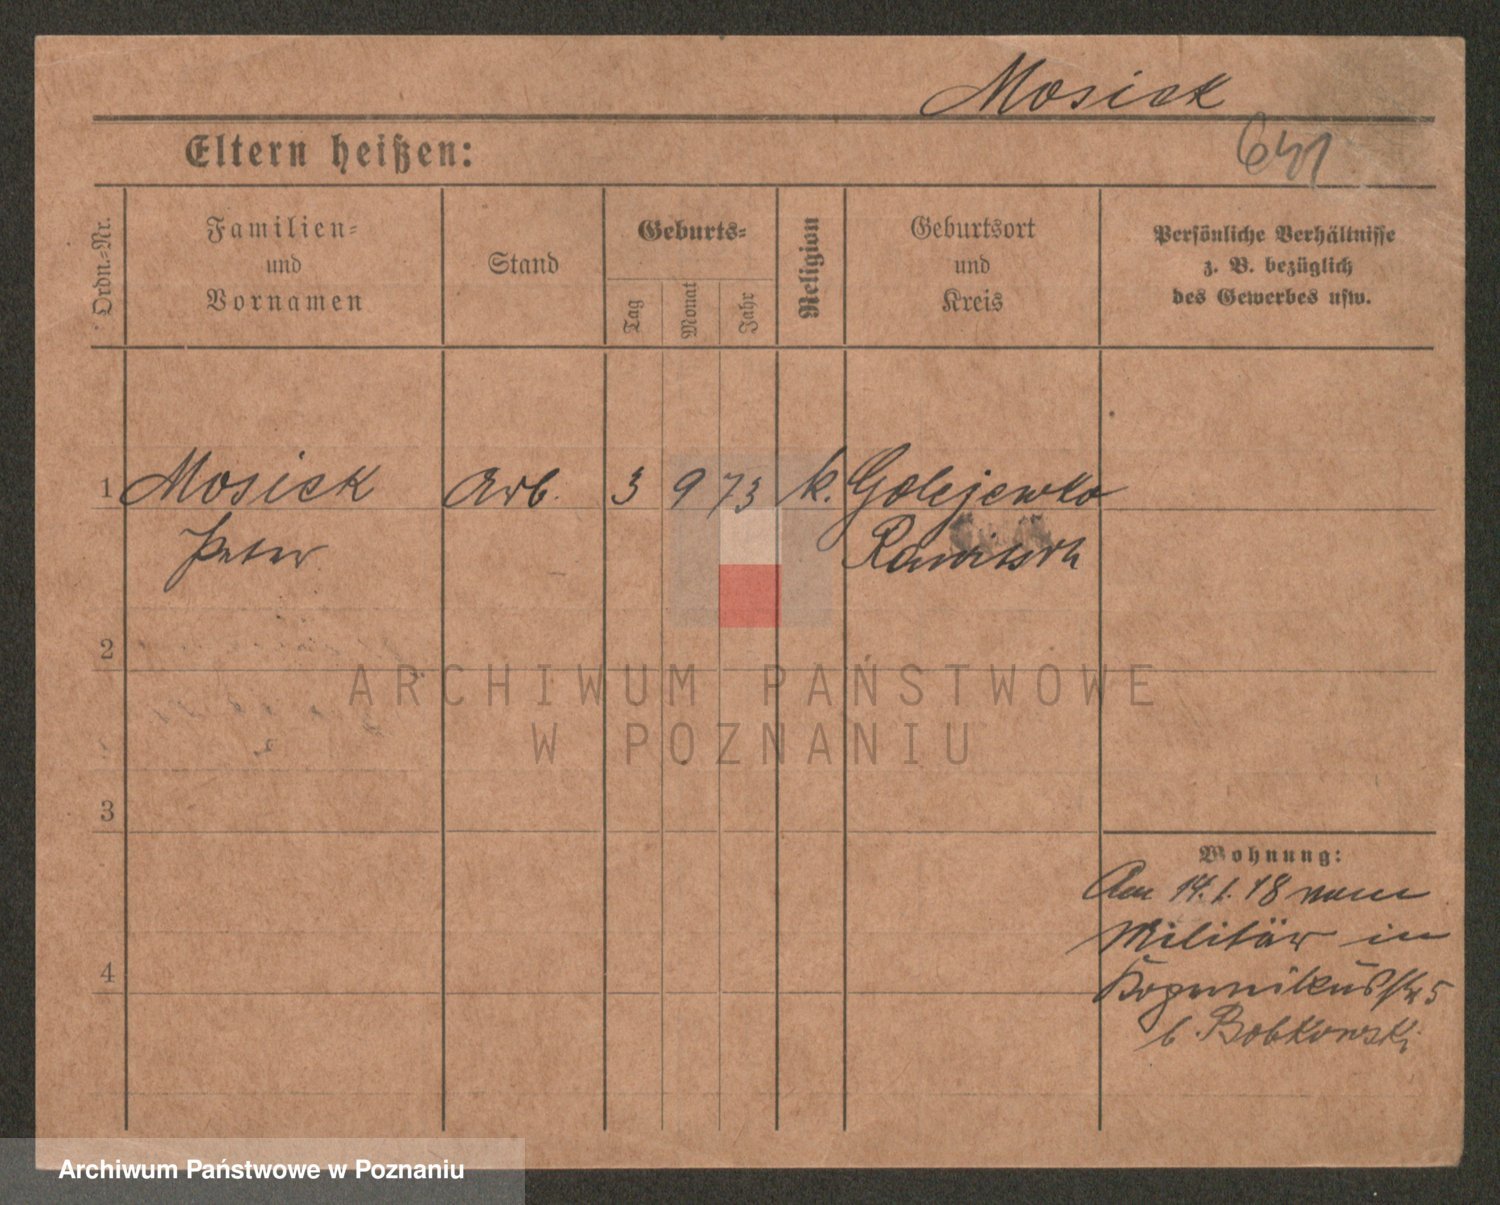 Mosiek
641
Eltern heißen:
Ordn.-Nr.
Familien-
und
Vornamen
Stand
Geburts-
Tag
Monat
Jahr
Religion
Geburtsort
und
Kreis
Persönliche Verhältnisse
z. B. bezüglich
des Gewerbes usw.
1 Mosiek Arb. 3 9 73 k. Golejewko
Peter Rawitsch
2
3
4
Wohnung:
Am 14. 1. 18 vom
Militär in
Kopernikusstr 5
b. Bobkowski
ARCHIWUM PAŃSTWOWE
W POZNANIU
Archiwum Państwowe w Poznaniu